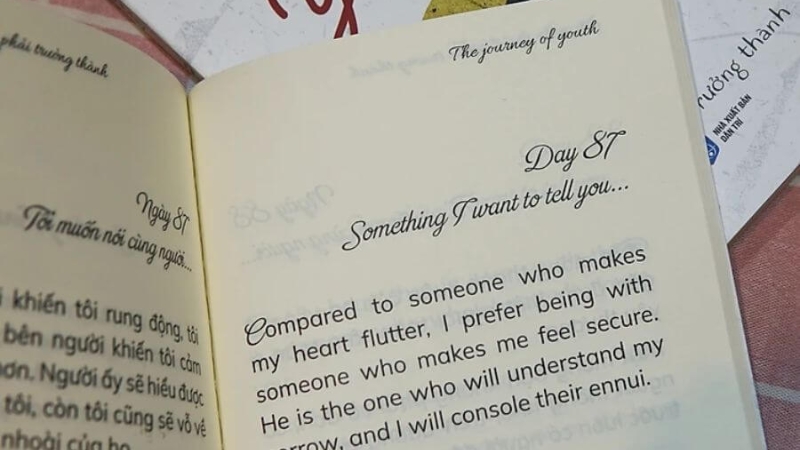 phải trưởng thành
Ngày 87
Tôi muốn nói cùng người...
khiến tôi rung động, tôi
bên người khiến tôi cảm
hơn. Người ấy sẽ hiểu được
tôi, còn tôi cũng sẽ vỗ về
nhoài của họ
The journey of youth
Day 87
Something I want to tell you...
Compared to someone who makes
my heart flutter, I prefer being with
someone who makes me feel secure.
He is the one who will understand my
and I will console their ennui.
trưởng thành
NHÀ XUẤT BẢN
DÂN TRÍ